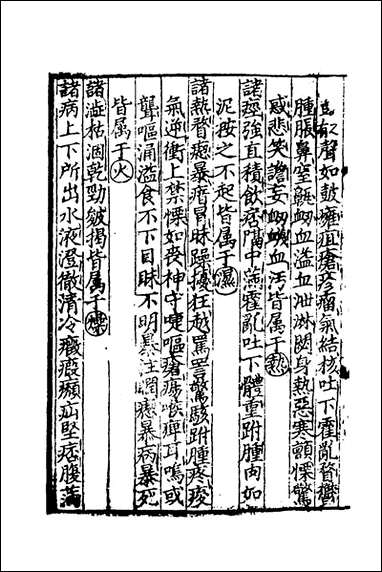 有聲如鼓癰疽瘡疹瘤氣結核吐下霍亂瞀鬱
腫脹鼻窒鼽衂血溢血泄淋閟身熱惡寒顫慄驚
惑悲笑譫妄衂衊血汚皆属于熱
諸痙強直積飲痞隔中滿霍亂吐下體重胕腫肉如
泥按之不起皆属于濕
諸熱瞀瘛暴瘖冒昧躁擾狂越罵詈驚駭胕腫疼痠
氣逆衝上禁慄如喪神守嚏嘔瘡瘍喉痺耳鳴或
聾嘔涌溢食不下目昧不明暴注瞤瘛暴病暴死
皆属于火
諸澁枯涸乾勁皴揭皆属于燥
諸病上下所出水液澄徹清冷癥瘕㿗疝堅痞腹滿